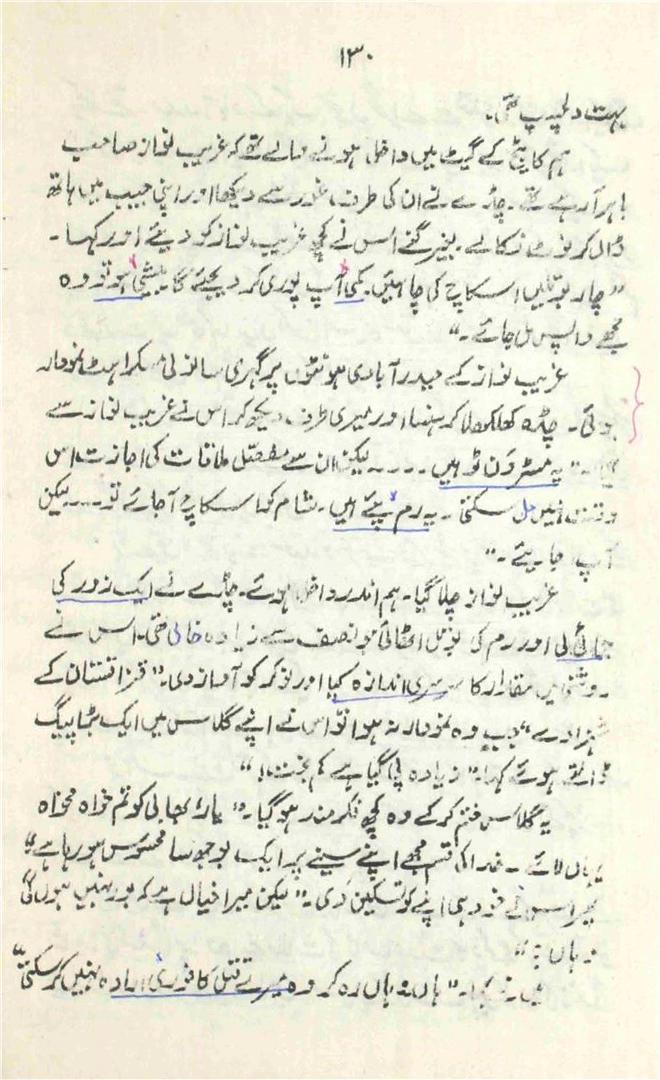 ۱۳۰
بہت دلچسپ تھی۔
ہم کاٹیج کے گیٹ میں داخل ہونے والے تھے کہ غریب نواز صاحب
باہر آرہے تھے۔ چڈے نے ان کی طرف غور سے دیکھا اور اپنی جیب میں ہاتھ
ڈال کر نوٹ نکالے۔ بغیر گنے اُس نے کچھ غریب نواز کو دیئے اور کہا۔
"چار بوتلیں اسکاچ کی چاہئیں۔ کمی آپ پوری کر دیجئے گا۔ بیشی ہو تو وہ
مجھے واپس مل جائے۔"
غریب نواز کے حیدر آبادی ہونٹوں پر گہری سانولی مسکراہٹ نمودار
ہوئی۔ چڈہ کھلکھلا کر ہنسا اور میری طرف دیکھ کر اس نے غریب نواز سے
کہا۔ "یہ مسٹر ون ٹو ہیں ۔۔۔۔۔ لیکن ان سے مفصل ملاقات کی اجازت اس
وقت نہیں مل سکتی۔ یہ رم پئے ہیں۔ شام کو اسکاچ آجائے تو ۔۔۔ لیکن
آپ جایئے۔"
غریب نواز چلا گیا۔ ہم اندر داخل ہوئے۔ چڈے نے ایک زور کی
جمائی لی اور رم کی بوتل اٹھائی جو نصف سے زیادہ خالی تھی۔ اس نے
روشنی میں مقدار کا سرسری اندازہ کیا اور نوکر کو آواز دی۔ "قزاقستان کے
شہزادے" جب وہ نمودار نہ ہوا تو اس نے اپنے گلاس میں ایک بڑا پیگ
ڈالتے ہوئے کہا: "زیادہ پی گیا ہے کم بخت!"
یہ گلاس ختم کر کے وہ کچھ فکر مند ہو گیا۔ "یار، بھابی کو تم خواہ مخواہ
یہاں لائے۔ خدا کی قسم مجھے اپنے سینے پر ایک بوجھ سا محسوس ہو رہا ہے"
پھر اس نے خود ہی اپنے کو تسکین دی۔ "لیکن میرا خیال ہے کہ بور نہیں ہوں گی
وہاں؟"
میں نے کہا۔ "ہاں وہاں رہ کر وہ میرے قتل کا فوری ارادہ نہیں کر سکتی"